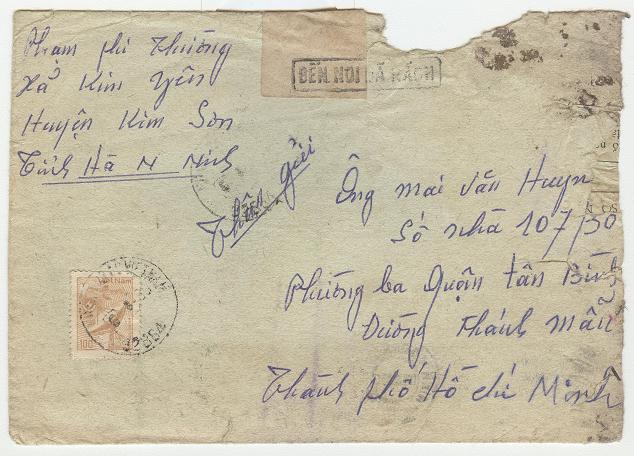 Phạm Phi Thường
Xã Kim Yên
Huyện Kim Sơn
Tỉnh Hà N Ninh
ĐẾN NƠI ĐÃ RÁCH
Thân gửi
Ông Mai Văn Huyn
Số nhà 107/30
Phường ba Quận Tân Bình
Đường Thánh Mẫu
Thành phố Hồ Chí Minh
VIETNAM
100